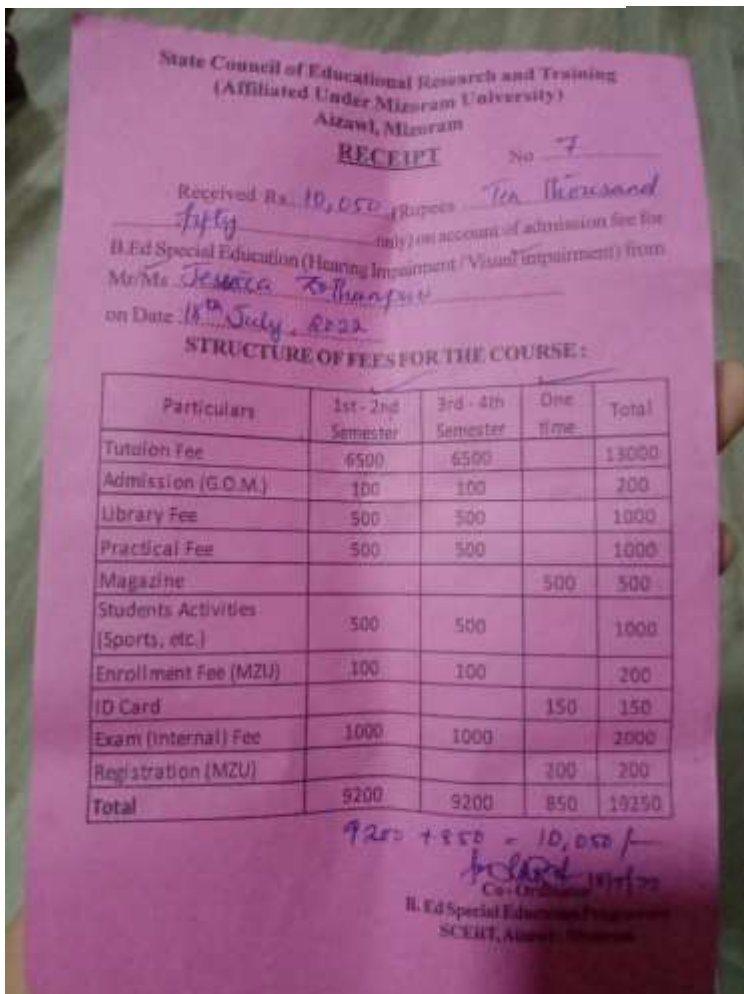 State Council of Educational Research and Training
(Affiliated Under Mizoram University)
Aizawl, Mizoram
RECEIPT No 7
Received Rs. 10,050 (Rupees Ten Thousand
fifty only) on account of admission fee for
B.Ed Special Education (Hearing Impairment / Visual impairment) from
Mr/Ms Jessica
on Date 18th July, 2022
STRUCTURE OF FEES FOR THE COURSE :
Particulars 1st - 2nd Semester 3rd - 4th Semester One time Total
Tutuion Fee 6500 6500 13000
Admission (G.O.M.) 100 100 200
Library Fee 500 500 1000
Practical Fee 500 500 1000
Magazine 500 500
Students Activities (Sports, etc.) 500 500 1000
Enrollment Fee (MZU) 100 100 200
ID Card 150 150
Exam (Internal) Fee 1000 1000 2000
Registration (MZU) 200 200
Total 9200 9200 850 19250
9200 + 850 = 10,050/-
Co-Ordinator
B. Ed Special Education Programme
SCERT, Aizawl, Mizoram